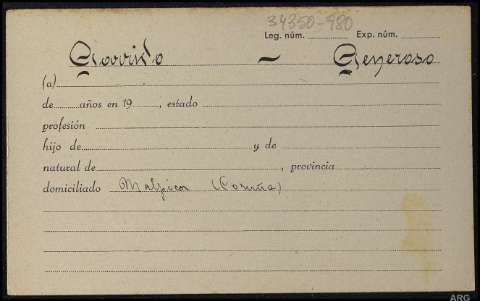 34350-980
Leg. núm. Exp. núm.
Garrido - Generoso
(a)
de años en 19 , estado
profesión
hijo de y de
natural de , provincia
domiciliado Malpica (Coruña)
ARG